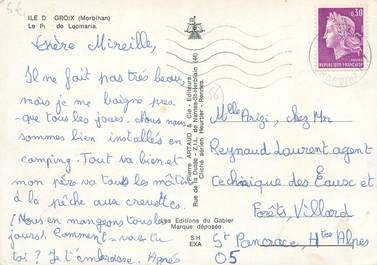 ILE D GROIX (Morbihan)
Le P de Locmaria.
Chère Mireille,
Il ne fait pas très beau
mais je me baigne pres-
que tous les jours. Nous nous
sommes bien installés en
camping. Tout va bien et
mon père va tous les matins
à la pêche aux crevettes.
(Nous en mangeons tous les
jours! Comment vas-tu
toi? Je t'embrasse. Agnès
Pierre ARTAUD & Cie - Editeurs
Rue de la Dutée - Z.I.L. de Nantes-St-Herblain (44)
Cliché aérien Heurtier - Rennes.
Les Editions du Gabier
Marque déposée
S H
EXA
0,30
REPUBLIQUE FRANÇAISE
Mlle Arizi, chez Mr
Reynaud Laurent agent
technique des Eaux et
Forêts, Villard
St Pancrace, Htes Alpes
05